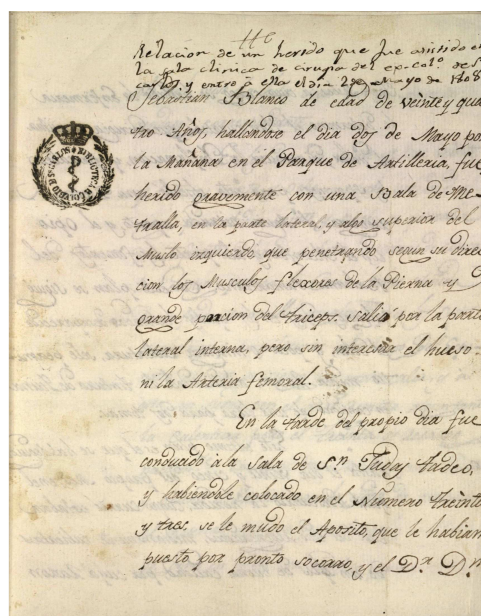 116
Relacion de un herido que fue asistido en
la sala clinica de cirugia del ex-colo. de S.
Carlos, y entró a ella el dia 2 de Mayo de 1808
Sebastian Blanco de edad de veinte y qua
tro Años, hallandose el dia dos de Mayo por
la Mañana en el Parque de Artilleria, fue
herido gravemente con una Bala de Me
tralla, en la parte lateral, y algo superior del
Muslo izquierdo que penetrando segun su direc
cion los Musculos flexores de la Pierna y
grande porcion del triceps, salio por la parte
lateral interna, pero sin interesar el hueso
ni la Arteria femoral.
En la tarde del propio dia fue
conducido ála Sala de Sn. Judas tadeo,
y habiendole colocado en el Numero treinta
y tres, se le mudo el Aposito, que le habian
puesto por pronto socorro, y el Dr. Dn